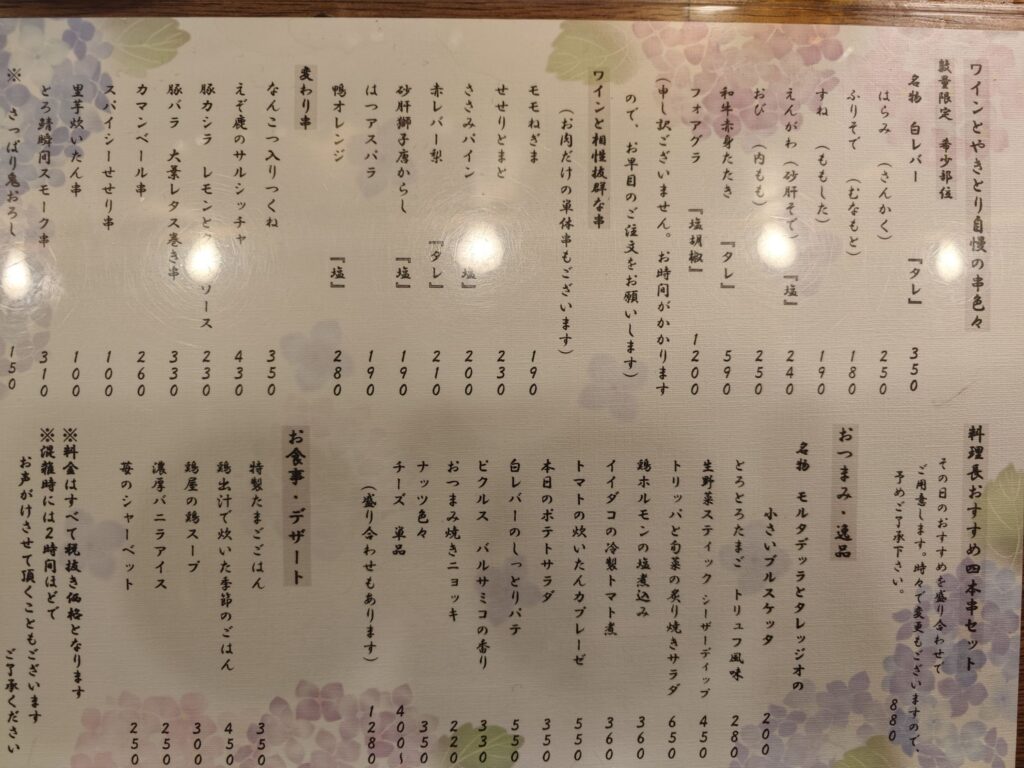 ワインとやきとり自慢の串色々
数量限定 希少部位
名物 白レバー 『タレ』 350
はらみ (さんかく) 250
ふりそで (むなもと) 180
すね (ももした) 190
えんがわ(砂肝そで) 『塩』 240
おび (内もも) 250
和牛赤身たたき 『タレ』 590
フォアグラ 『塩胡椒』 1200
(申し訳ございません。お時間がかかります
ので、お早目のご注文をお願いします)
ワインと相性抜群な串
(お肉だけの単体串もございます)
モモねぎま 190
せせりとまと 230
ささみパイン 『塩』 200
赤レバー梨 『タレ』 210
砂肝獅子唐からし 『塩』 190
はつアスパラ 190
鴨オレンジ 『塩』 280
変わり串
なんこつ入りつくね 350
えぞ鹿のサルシッチャ 430
豚カシラ レモンと ソース 230
豚バラ 大葉レタス巻き串 330
カマンベール串 260
スパイシーせせり串 100
里芋炊いたん串 100
とろ鯖瞬間スモーク串 310
※ さっぱり鬼おろし 150
料理長おすすめ四本串セット
その日のおすすめを盛り合わせて
ご用意します。時々で変更もございますので、
予めご了承下さい。 880
おつまみ・逸品
名物 モルタデッラとタレッジオの
小さいブルスケッタ 200
とろとろたまご トリュフ風味 280
生野菜スティック シーザーディップ 450
トリッパと旬菜の炙り焼きサラダ 650
鶏ホルモンの塩煮込み 360
イイダコの冷製トマト煮 360
トマトの炊いたんカプレーゼ 550
本日のポテトサラダ 350
白レバーのしっとりパテ 550
ピクルス バルサミコの香り 330
おつまみ焼きニョッキ 220
ナッツ色々 350
チーズ 単品 400〜
(盛り合わせもあります) 1280
お食事・デザート
特製たまごごはん 350
鶏出汁で炊いた季節のごはん 450
鶏屋の鶏スープ 300
濃厚バニラアイス 250
苺のシャーベット 250
※料金はすべて税抜き価格となります
※混雑時には2時間ほどで
お声がけさせて頂くこともございます
ご了承ください